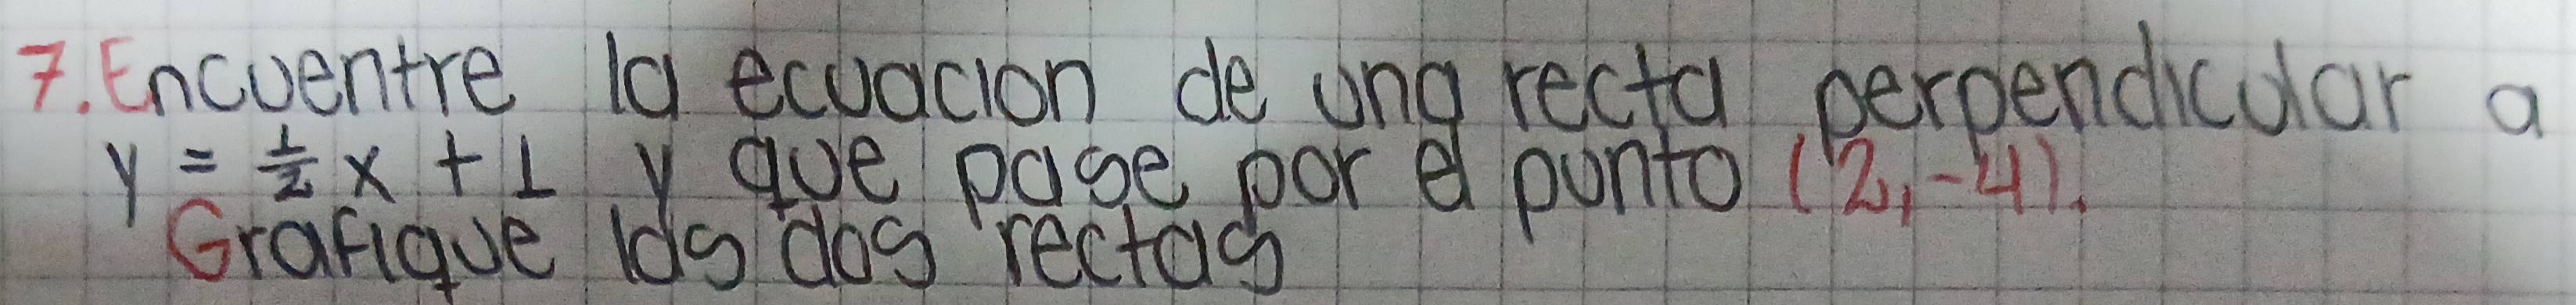 7. Encuentre la ecuacion de una recta perpendicular a
y = 1/2 x + 1 y que pase por el punto (2, -4).
Grafique las dos rectas